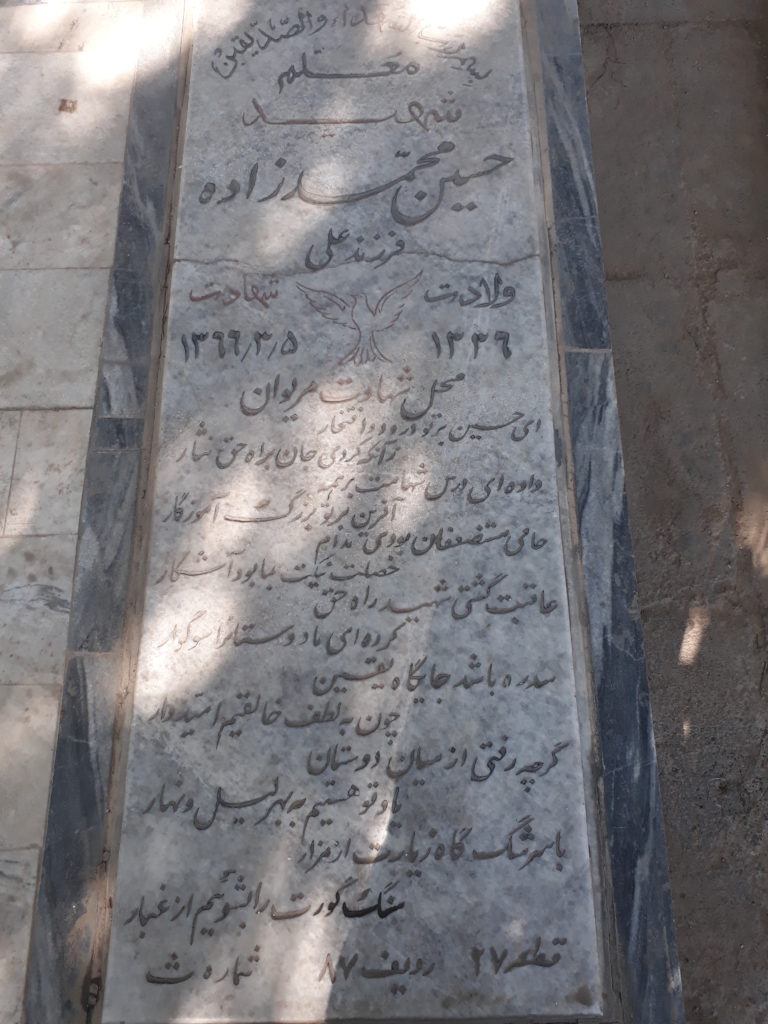 بسم رب الشهداء والصدیقین
معلم
شهید
حسین محمدزاده
فرزند علی
ولادت شهادت
۱۳۳۶ ۱۳۶۶/۳/۵
محل شهادت مریوان
ای حسین بر تو درود و افتخار
زانکه کردی جان براه حق نثار
داده ای درس شهامت بر همه
آفرین بر تو بزرگ آموزگار
حامی مستضعفان بودی مدام
خصلت نیکت بما بود آشکار
عاقبت گشتی شهید راه حق
کرده ای ما دوستانرا سوگوار
سدره باشد جایگاه یقین
چون به لطف خالقیم امیدوار
گرچه رفتی از میان دوستان
یاد تو هستیم به هر لیل و نهار
با سرشگ گاه زیارت از مزار
سنگ گورت را بشوئیم از غبار
قطعه ۲۷ ردیف ۸۷ شماره ث